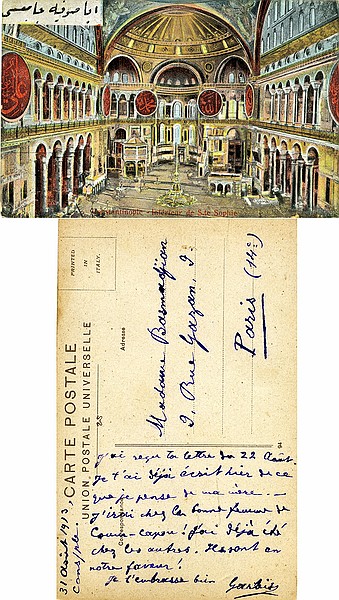 ايا صوفيه جامعسى
Constantinople - Intérieur de Ste Sophie
PRINTED IN ITALY.
CARTE POSTALE
UNION POSTALE UNIVERSELLE
Correspondance
Adresse
94
Madame Basmadjian
9. Rue Gazan. 9.
Paris (14e)
31 Août 1913,
Consple.
J'ai reçu ta lettre du 22 Août.
Je t'ai déjà écrit hier de ce
que je pense de ma mère...
J'irai chez la bonne femme de
Coum-Capou! J'ai déjà été
chez les autres. Ils sont en
notre faveur!
Je t'embrasse bien
Garbis